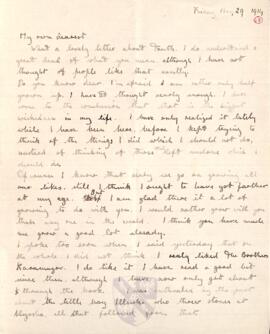 Friday May 29 1914
My own dearest
What a lovely letter about Truth. I do understand a
great deal of what you mean although I have not
thought of people like that exactly.
Do you know dear I'm afraid I am rather only half
grown up. I have thought nearly enough. I have
come to the conclusion that that is the biggest
wickedness in my life. I have only realized it lately
while I have been here. before I kept trying to
think of the things I did which I should not do,
instead of thinking of those left undone which I
should do.
Of course I know that really we go on growing all
one likes. still I think I ought to have got farther
at my age. But I am glad there is a lot of
growing to do with you. I would rather grow with you
than any one in the world. I think you have made
me grow a good lot already.
I spoke too soon when I said yesterday that on
the whole I did not think I really liked The Brothers
Karamazov. I do like it I have read a good bit
since then. although I have now only got about
through the book. I was
about the little boy Illusha who throws stones at
Alyosha all that followed from that.